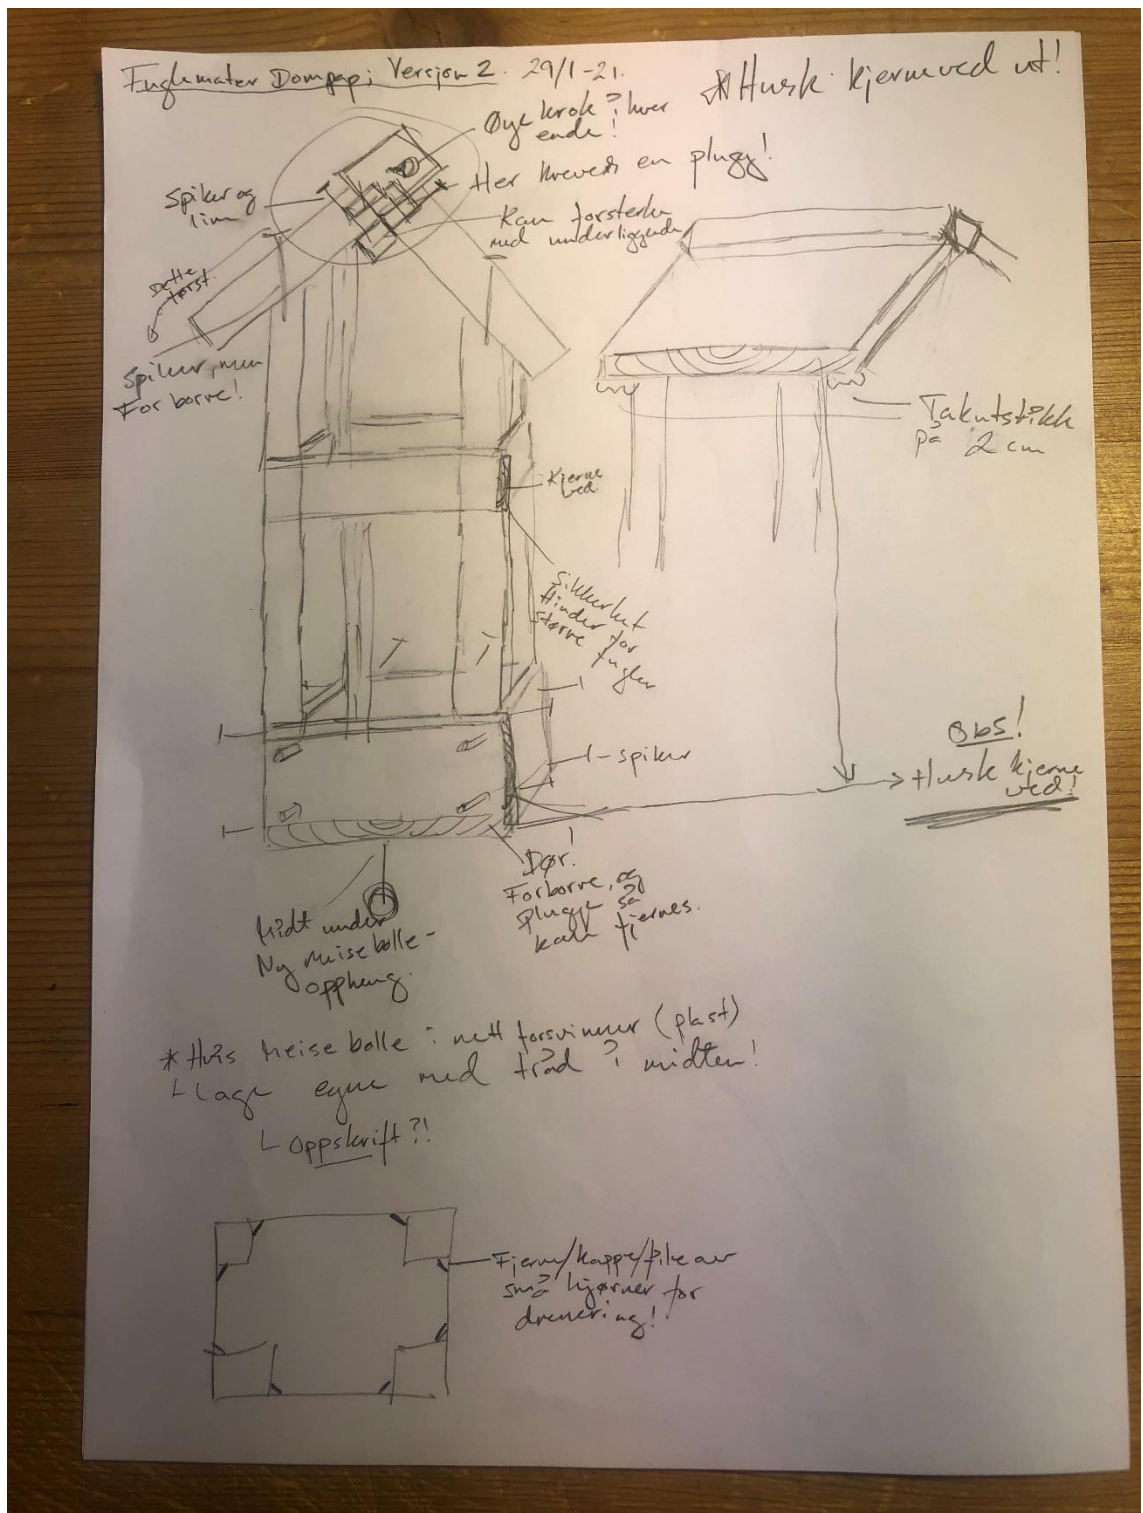 Fuglemater Dompap; Versjon 2. 29/1-21.
* Husk kjerneved ut!
Øye krok i hver
ende!
Her kreves en plugg!
Spiker og
lim
Kan forsterke
med underliggende
Dette
først.
Spiker, men
For borre!
Takutstikk
på 2 cm
Kjerne
ved.
Sikkerhet
Hinder for
større fugler
Obs!
Husk kjerne
ved!
1-spiker
Dør!
Forborre, og
plugge så
kan fjernes.
Midt under
Ny meisebolle-
oppheng.
* Hvis Meise bolle i nett forsvinner (plast)
Lage egne med tråd i midten!
Oppskrift?!
Fjerne/kappe/file av
små hjørner for
drenering!